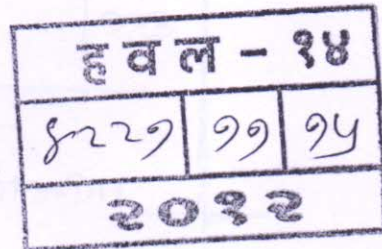 हवल - १४
४२२१ ११ १५
२०१२